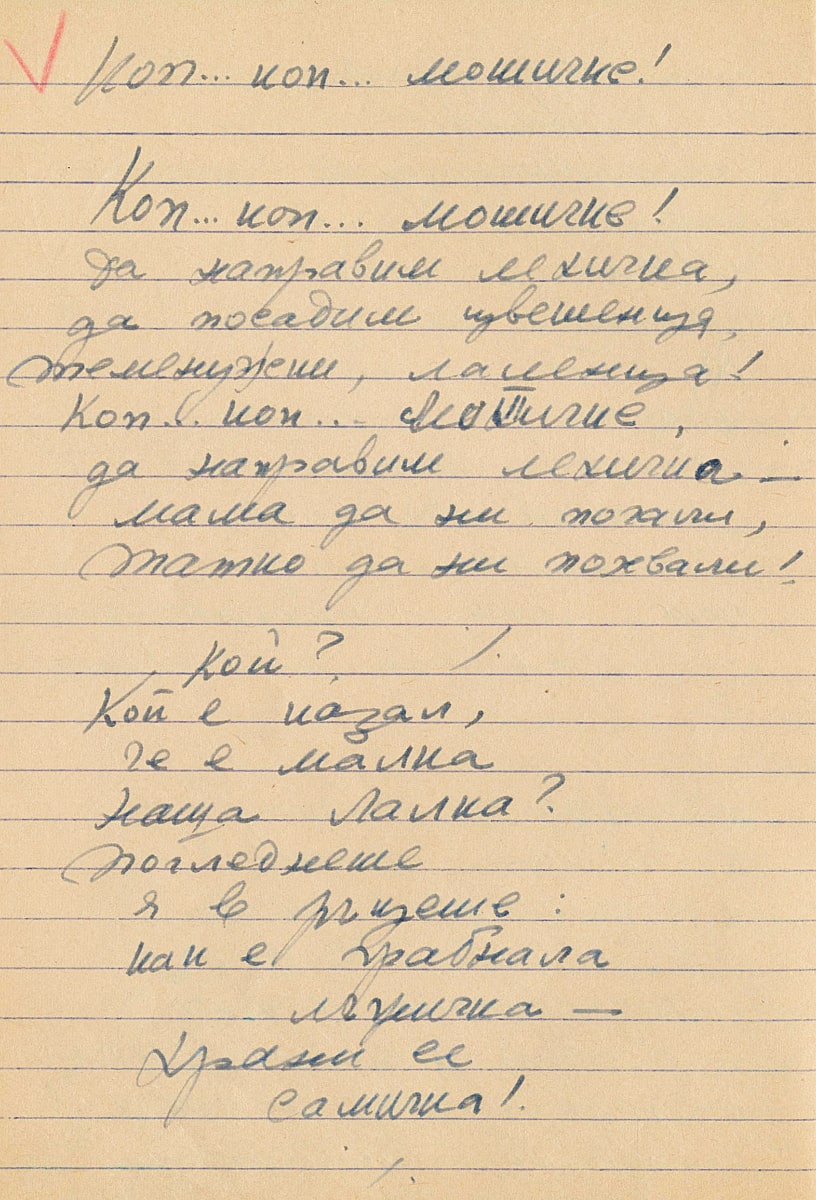 Коп... коп... мотичке!
Коп... коп... мотичке!
Да направим лехичка,
да посадим цветенца,
теменужки, лаленца!
Коп... коп... мотичке,
да направим лехичка —
мама да ни погали,
татко да ни похвали!
Кой?
Кой е казал,
че е малка
наща Лалка?
Погледнете
я в ръцете:
как е грабнала
лъжичка —
храни се
самичка!